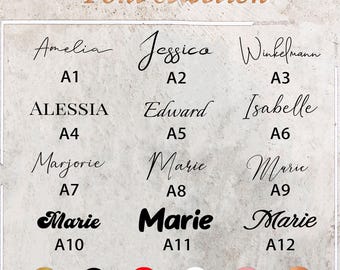 Amelia Jessica Winkelmann
A1 A2 A3
ALESSIA Edward Isabelle
A4 A5 A6
Marjorie Marie Marie
A7 A8 A9
Marie Marie Marie
A10 A11 A12